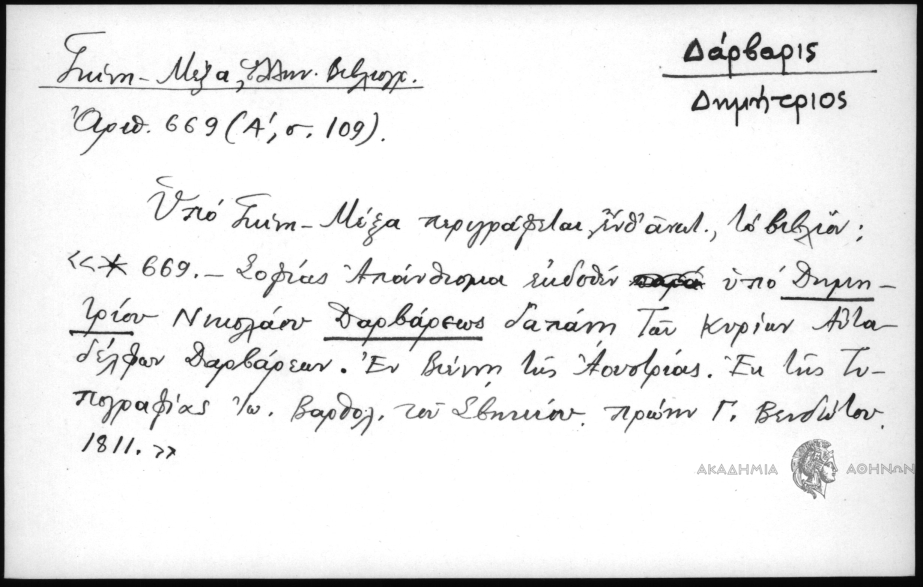 Γκίνη - Μέξα, Ἑλλην. Βιβλιογρ.
Δάρβαρις
Δημήτριος
Ἀριθ. 669 (Α΄, σ. 109).
Ὑπό Γκίνη - Μέξα περιγράφεται, ἔνθ' ἀνωτ., τό βιβλίον:
«* 669. - Σοφίας Ἀπάνθισμα ἐκδοθέν παρά ὑπό Δημη-
τρίου Νικολάου Δαρβάρεως δαπάνῃ Τῶν Κυρίων Αὐτα-
δέλφων Δαρβάρεων. Ἐν Βιέννῃ τῆς Ἀουστρίας. Ἐκ τῆς Τυ-
πογραφίας Ἰω. Βαρθολ. τοῦ Σβηκίου. πρώην Γ. Βενδώτου.
1811.»
ΑΚΑΔΗΜΙΑ ΑΘΗΝΩΝ